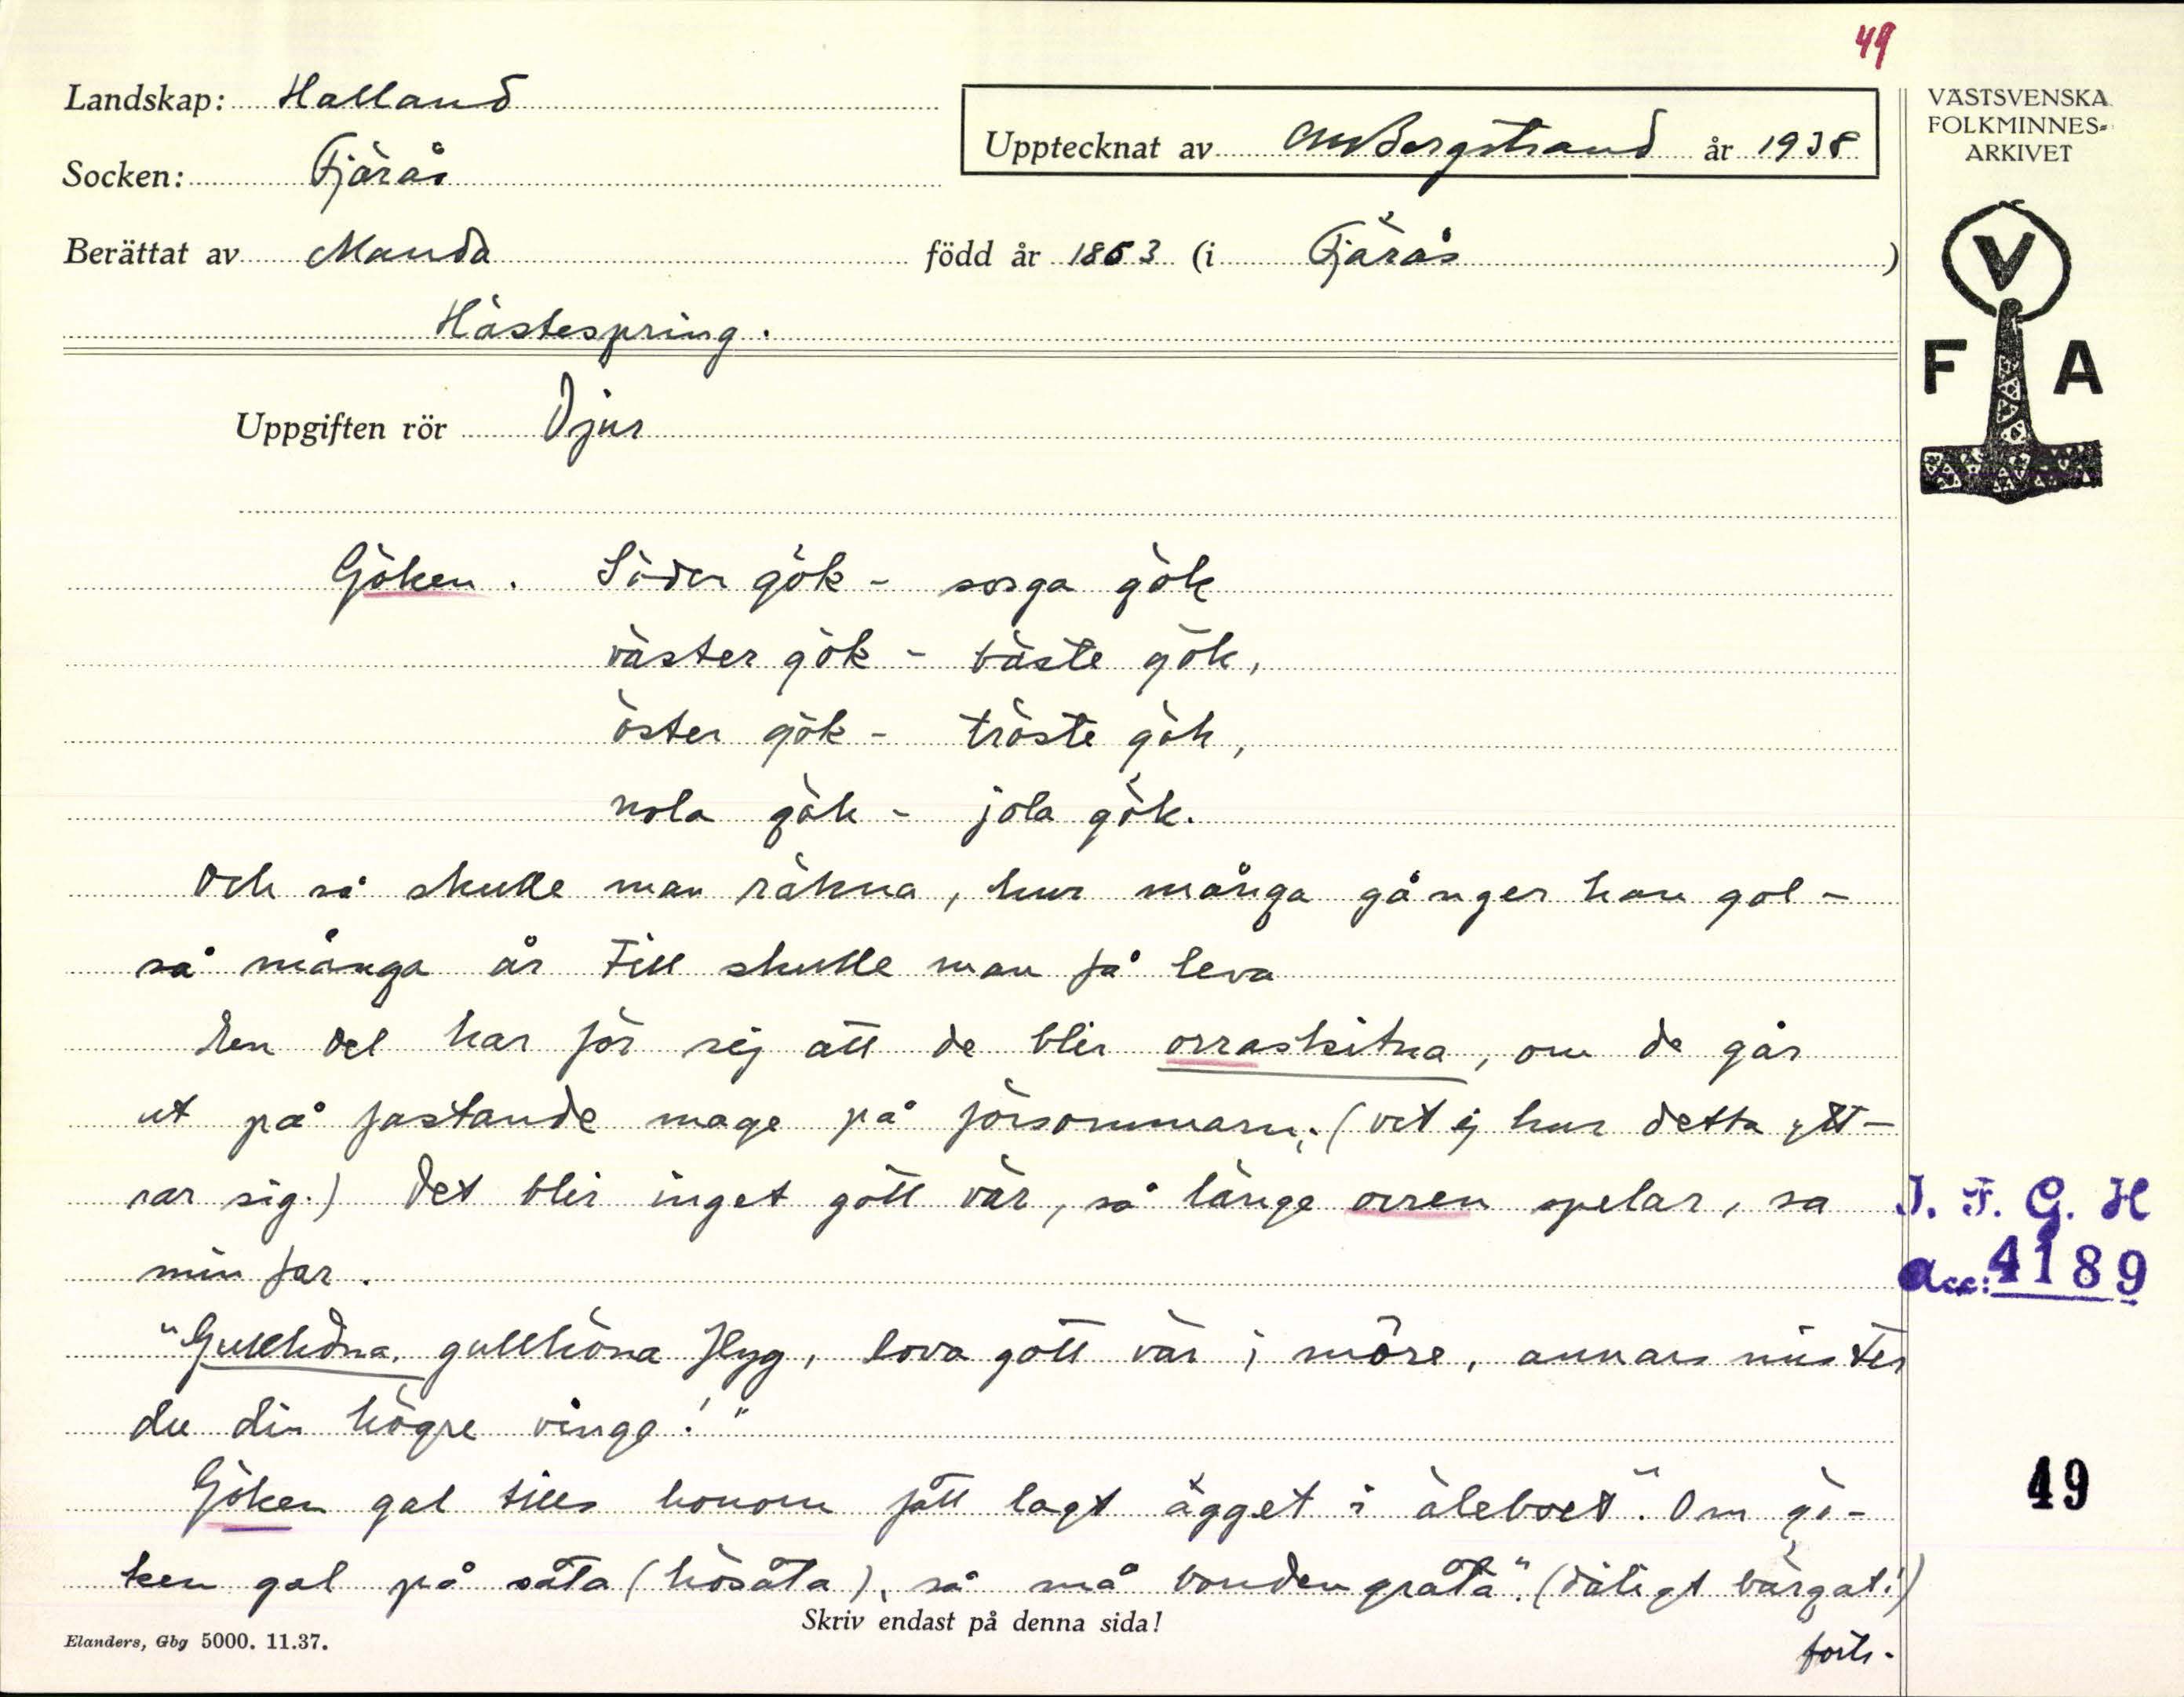 49
Landskap: Halland
Upptecknat av CMBergstrand år 1938
VÄSTSVENSKA
FOLKMINNES-
ARKIVET
Socken: Fjärås
Berättat av Manda född år 1863 (i Fjärås)
Hästespring.
V
F A
Uppgiften rör Djur
Göken. Söder gök - sorga gök
väster gök - bäste gök,
öster gök - tröste gök,
nola gök - jola gök.
Och så skulle man räkna, hur många gånger han gol -
så många år till skulle man få leva
En del har för sej att de blir orraskitna, om de går
ut på fastande mage på försommarn; (vet ej hur detta ytt-
rar sig.) Det blir inget gott vär, så länge orren spelar, sa
min far.
J. F. G. H
acc: 4189
"Gullhöna, gullhöna flyg, lova gott vär i möre, annars mister
du din högre vinge!"
Göken gal tills honom fått lagt ägget i åleboet". Om gö-
ken gal på såta (hösåta), så må bonden gråta". (dåligt bärgat!)
49
Skriv endast på denna sida!
Elanders, Gbg 5000. 11.37.
forts.